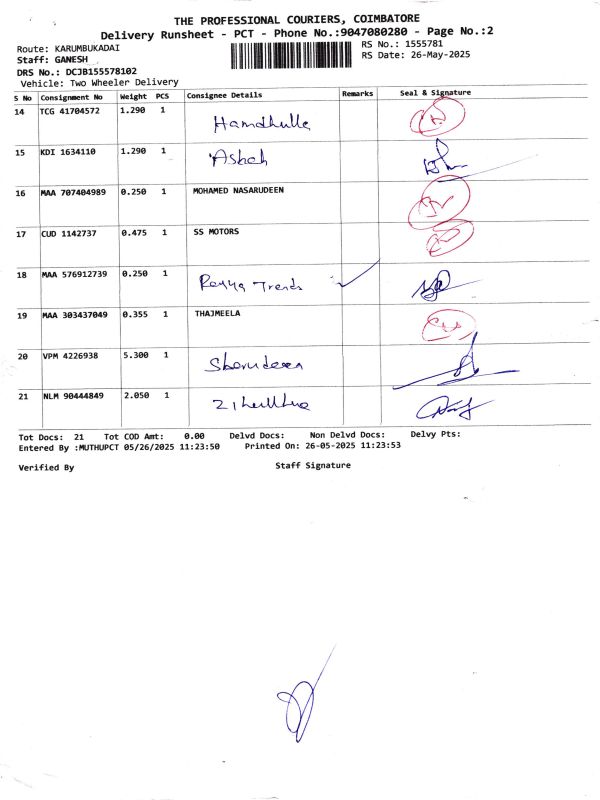 THE PROFESSIONAL COURIERS, COIMBATORE
Delivery Runsheet - PCT - Phone No.:9047080280 - Page No.:2
Route: KARUMBUKADAI
RS No.: 1555781
Staff: GANESH
RS Date: 26-May-2025
DRS No.: DCJB155578102
Vehicle: Two Wheeler Delivery
S No Consignment No Weight PCS Consignee Details Remarks Seal & Signature
14 TCG 41704572 1.290 1
15 KDI 1634110 1.290 1
16 MAA 707404989 0.250 1 MOHAMED NASARUDEEN
17 CUD 1142737 0.475 1 SS MOTORS
18 MAA 576912739 0.250 1 Trends
19 MAA 303437049 0.355 1 THAJMEELA
20 VPM 4226938 5.300 1
21 NLM 90444849 2.050 1
Tot Docs: 21 Tot COD Amt: 0.00 Delvd Docs: Non Delvd Docs: Delvy Pts:
Entered By :MUTHUPCT 05/26/2025 11:23:50 Printed On: 26-05-2025 11:23:53
Verified By Staff Signature